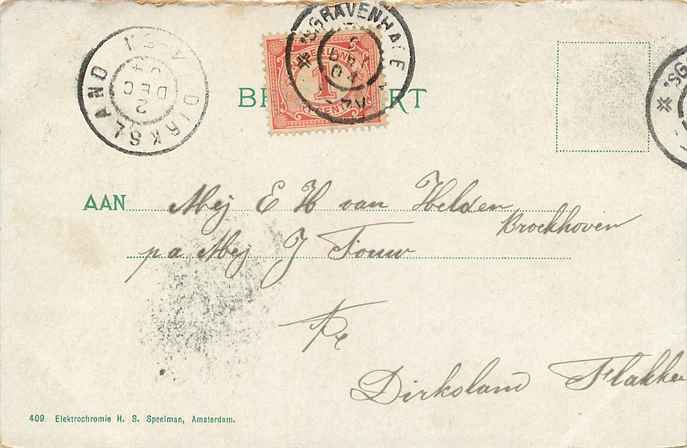 DIRKSLAND
2
DEC
'SGRAVENHAGE
1
CENT
BR KAART
AAN Mej E H van Helden
Brockhoven
pa Mej J Touw
Te
Dirksland Flakke
409 Elektrochromie H. S. Speelman, Amsterdam.